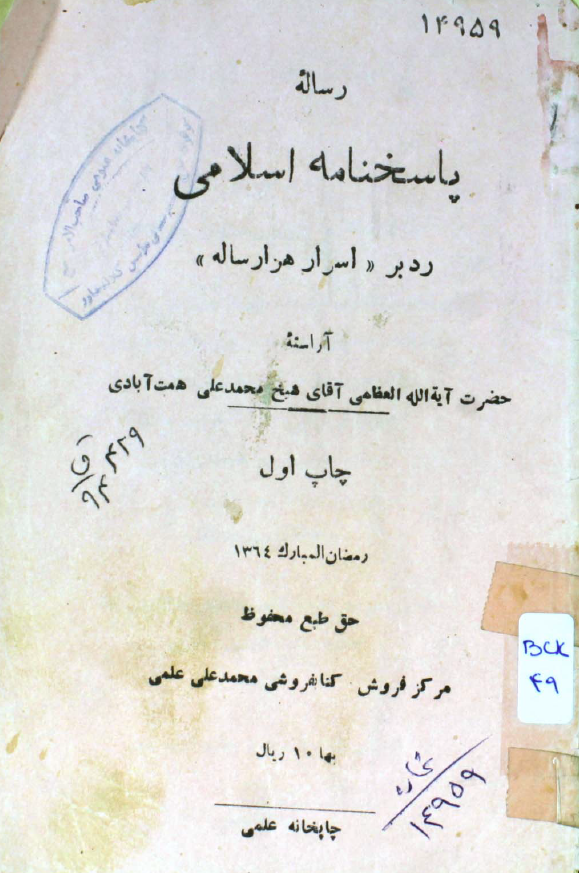 ۱۴۹۵۹
رسالهٔ
پاسخنامه اسلامی
رد بر « اسرار هزار ساله »
آراستهٔ
حضرت آیةالله العظمی آقای شیخ محمدعلی همت‌آبادی
چاپ اول
ق ۴۲۹
۹۴
رمضان‌المبارك ١٣٦٤
حق طبع محفوظ
BCK
۴۹
مرکز فروش کتابفروشی محمدعلی علمی
بها ۱۰ ریال
شماره
۱۴۹۵۹
چاپخانه علمی